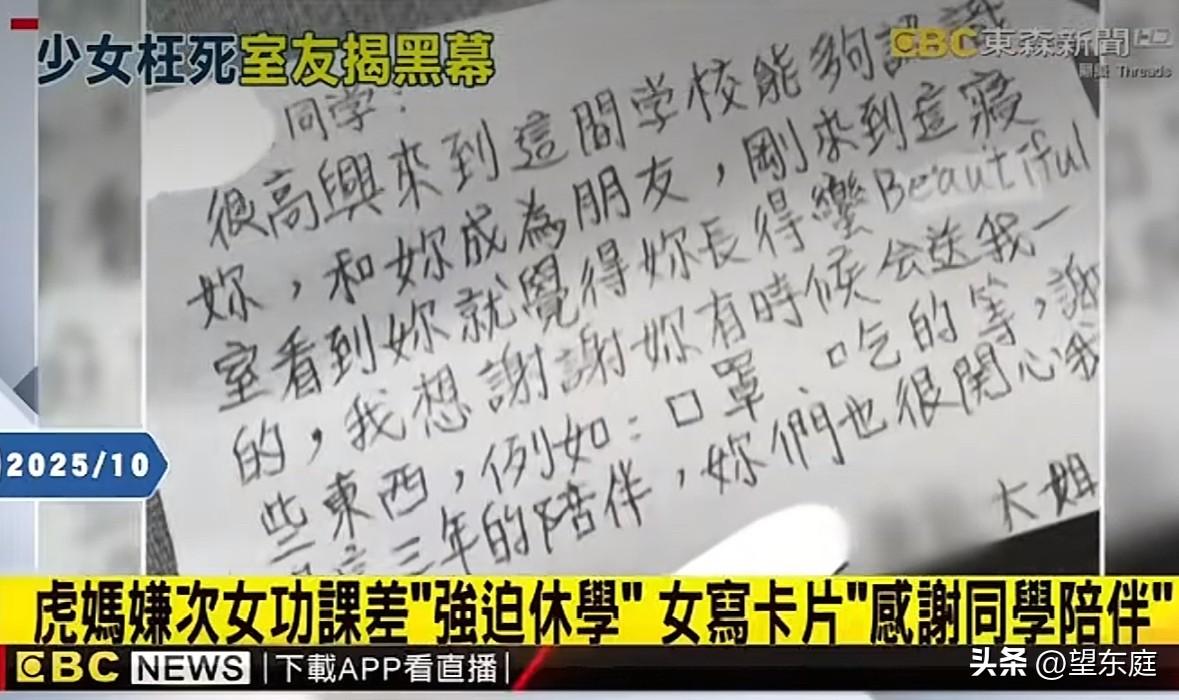 少女枉死室友揭黑幕
EBC 東森新聞 HD
Threads
同学：
很高興來到這間学校能夠認識
妳，和妳成為朋友，剛來到這寢
室看到妳就覺得妳長得蠻Beautiful
的，我想謝謝妳有時候会送我一
些東西，例如：口罩、吃的等，謝
三年的陪伴，妳們也很開心我
大姐
2025/10
虎媽嫌次女功課差"強迫休學" 女寫卡片"感謝同學陪伴"
EBC NEWS 下載APP看直播
头条 @望东庭